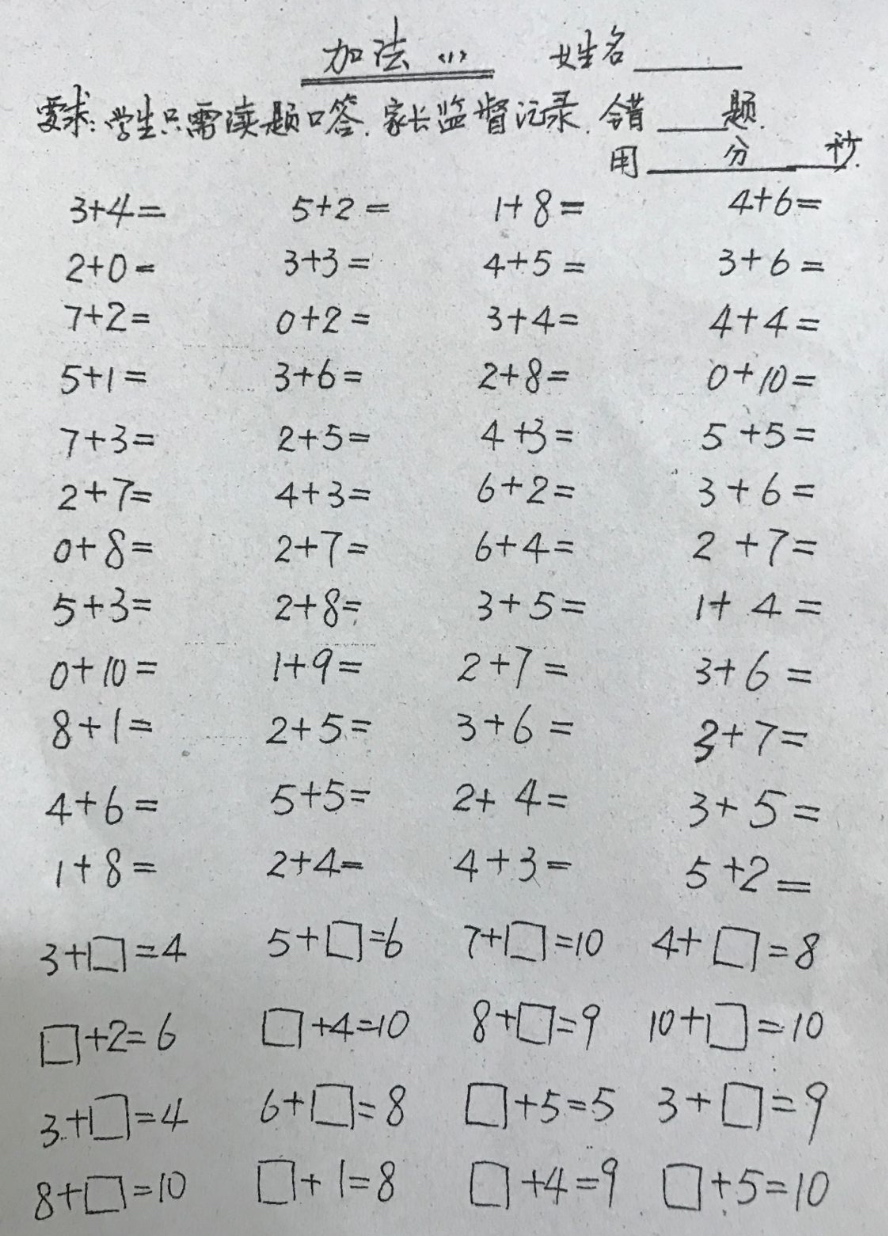 加法 (1) 姓名____
要求:学生只需读题口答.家长监督记录.合错____题.
用____分____秒.
3+4= 5+2= 1+8= 4+6=
2+0= 3+3= 4+5= 3+6=
7+2= 0+2= 3+4= 4+4=
5+1= 3+6= 2+8= 0+10=
7+3= 2+5= 4+3= 5+5=
2+7= 4+3= 6+2= 3+6=
0+8= 2+7= 6+4= 2+7=
5+3= 2+8= 3+5= 1+4=
0+10= 1+9= 2+7= 3+6=
8+1= 2+5= 3+6= 3+7=
4+6= 5+5= 2+4= 3+5=
1+8= 2+4= 4+3= 5+2=
3+□=4 5+□=6 7+□=10 4+□=8
□+2=6 □+4=10 8+□=9 10+□=10
3+□=4 6+□=8 □+5=5 3+□=9
8+□=10 □+1=8 □+4=9 □+5=10